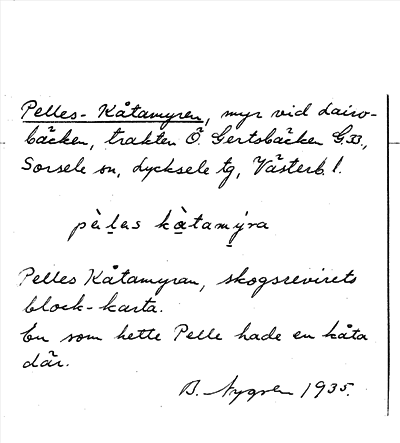 Pelles-Kåtamyren, myr vid Laiso-
bäcken, trakten Ö. Gertsbäcken G.33,
Sorsele sn, Lycksele tg, Västerb. l.
pè̱ḻas kà̱tamý̱ra
Pelles Kåtamyran, skogsrevirets
block-karta.
En som hette Pelle hade en kåta
där.
B. Nygren 1935.